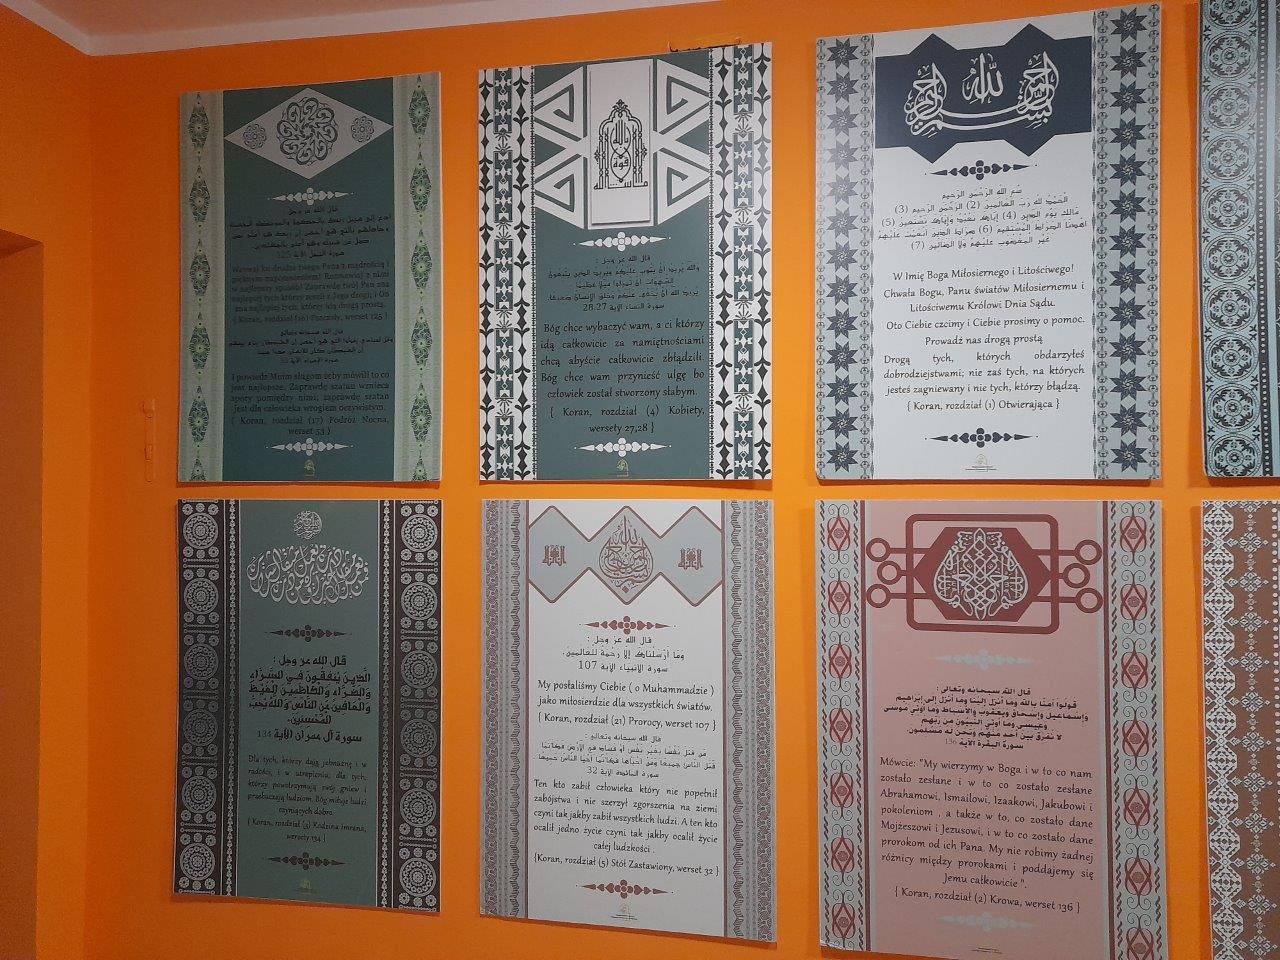 قال الله عز وجل
سورة النحل الآية 125
Wzywaj ku drodze twego Pana z mądrością i
pięknym napomnieniem! Rozmawiaj z nimi
w najlepszy sposób! Zaprawdę twój Pan zna
najlepiej tych, którzy zeszli z Jego drogi; i On
zna najlepiej tych, którzy idą drogą prostą.
{ Koran, rozdział (16) Pszczoły, werset 125 }
قال الله سبحانه وتعالى
سورة الإسراء الآية 53
I powiedz Moim sługom żeby mówili to co
jest najlepsze. Zaprawdę szatan wznieca
spory pomiędzy nimi; zaprawdę szatan
jest dla człowieka wrogiem oczywistym.
{ Koran, rozdział (17) Podróż Nocna,
werset 53 }
ما شاء الله
لا قوة إلا بالله
قال الله عز وجل :
والله يريد أن يتوب عليكم ويريد الذين يتبعون
الشهوات أن تميلوا ميلا عظيما
يريد الله أن يخفف عنكم وخلق الإنسان ضعيفا
سورة النساء الآية 28.27
Bóg chce wybaczyć wam, a ci którzy
idą całkowicie za namiętnościami
chcą abyście całkowicie zbłądzili.
Bóg chce wam przynieść ulgę bo
człowiek został stworzony słabym.
{ Koran, rozdział (4) Kobiety,
wersety 27,28 }
بسم الله الرحمن الرحيم
بسم الله الرحمن الرحيم
الحمد لله رب العالمين (2) الرحمن الرحيم (3)
مالك يوم الدين (4) إياك نعبد وإياك نستعين (5)
اهدنا الصراط المستقيم (6) صراط الذين أنعمت عليهم
غير المغضوب عليهم ولا الضالين (7)
W Imię Boga Miłosiernego i Litościwego!
Chwała Bogu, Panu światów Miłosiernemu i
Litościwemu Królowi Dnia Sądu.
Oto Ciebie czcimy i Ciebie prosimy o pomoc.
Prowadź nas drogą prostą
Drogą tych, których obdarzyłeś
dobrodziejstwami; nie zaś tych, na których
jesteś zagniewany i nie tych, którzy błądzą.
{ Koran, rozdział (1) Otwierająca }
قال الله عز وجل :
الذين ينفقون في السراء
والضراء والكاظمين الغيظ
والعافين عن الناس والله يحب
المحسنين.
سورة آل عمران الآية 134
Dla tych, którzy dają jałmużnę i w
radości, i w utrapieniu; dla tych,
którzy powstrzymują swój gniew i
przebaczają ludziom. Bóg miłuje ludzi
czyniących dobro.
{ Koran, rozdział (3) Rodzina Imrana,
wersety 134 }
قال الله عز وجل :
وما أرسلناك إلا رحمة للعالمين.
سورة الأنبياء الآية 107
My posłaliśmy Ciebie ( o Muhammadzie )
jako miłosierdzie dla wszystkich światów.
{ Koran, rozdział (21) Prorocy, werset 107 }
قال الله سبحانه وتعالى :
من قتل نفسا بغير نفس أو فساد في الأرض فكأنما
قتل الناس جميعا ومن أحياها فكأنما أحيا الناس جميعا
سورة المائدة الآية 32
Ten kto zabił człowieka który nie popełnił
zabójstwa i nie szerzył zgorszenia na ziemi
czyni tak jakby zabił wszystkich ludzi. A ten kto
ocalił jedno życie czyni tak jakby ocalił życie
całej ludzkości .
{Koran, rozdział (5) Stół Zastawiony, werset 32 }
قال الله سبحانه وتعالى :
قولوا آمنا بالله وما أنزل إلينا وما أنزل إلى إبراهيم
وإسماعيل وإسحاق ويعقوب والأسباط وما أوتي موسى
وعيسى وما أوتي النبيون من ربهم
لا نفرق بين أحد منهم ونحن له مسلمون.
سورة البقرة الآية 136
Mówcie: "My wierzymy w Boga i w to co nam
zostało zesłane i w to co zostało zesłane
Abrahamowi, Ismailowi, Izaakowi, Jakubowi i
pokoleniom , a także w to, co zostało dane
Mojżeszowi i Jezusowi, i w to co zostało dane
prorokom od ich Pana. My nie robimy żadnej
różnicy między prorokami i poddajemy się
Jemu całkowicie ".
{ Koran, rozdział (2) Krowa, werset 136 }